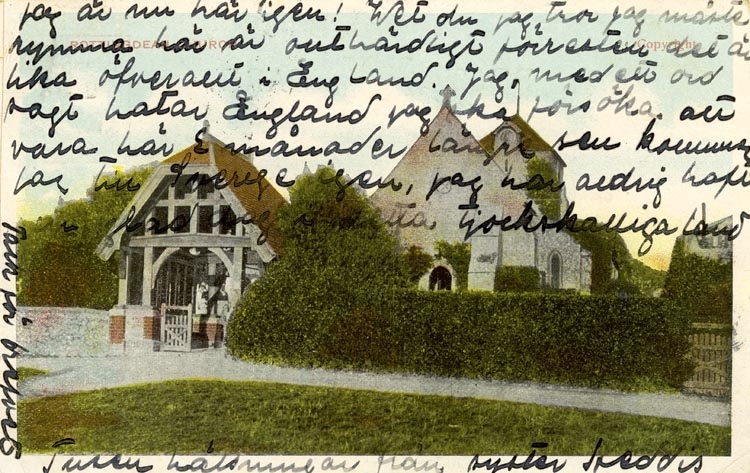 jag är nu här igen! Vet du jag tror jag måste
rymma här är outhärdligt förresten det är
lika öfverallt i England. Jag, med ett ord
sagt hatar England jag ska försöka att
vara här 3 månader längre sen kommer
jag till Sverige igen, jag har aldrig haft
i detta tjockskalliga land
ROTTINGDEAN CHURCH
Copyright
Tack för brefvet
Tusen hälsningar från syster Heddis